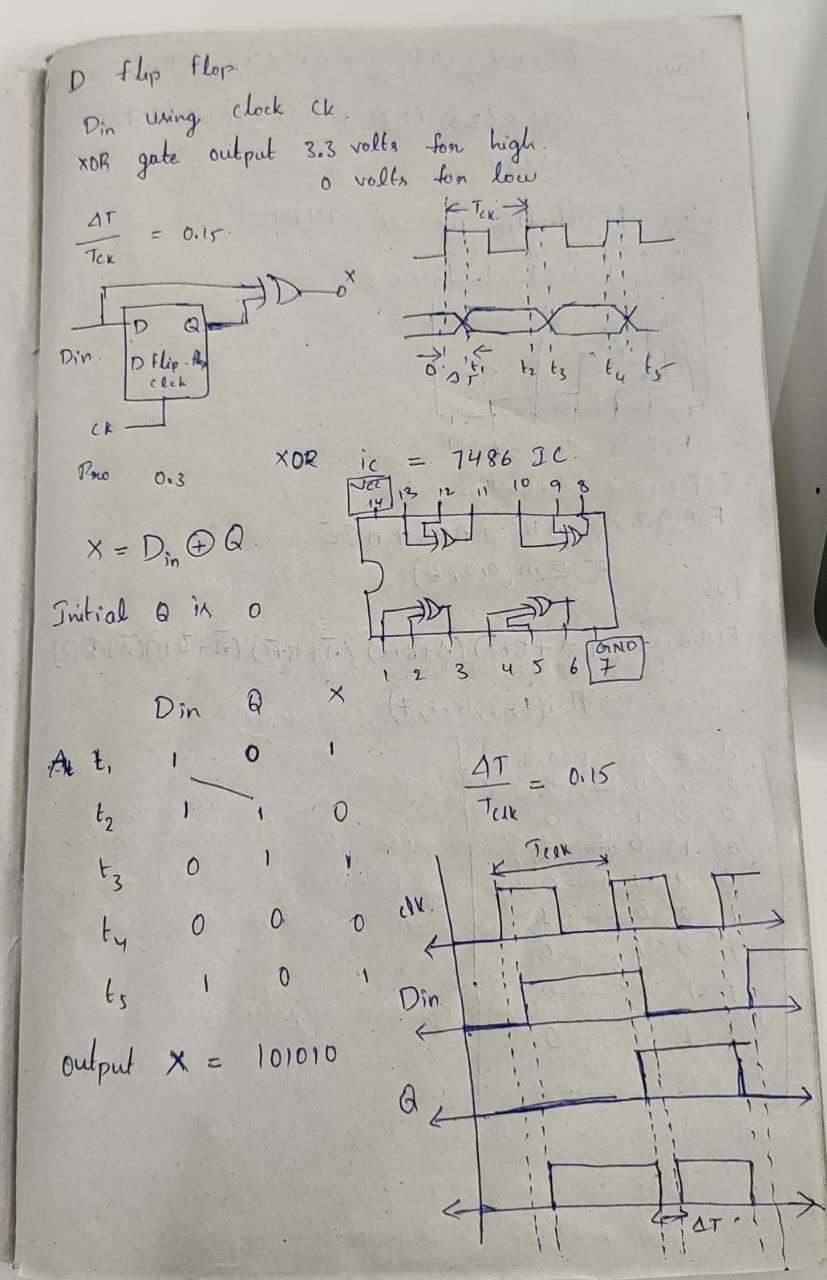 D flip flop
Din using clock ck.
XOR gate output 3.3 volts for high.
0 volts for low
ΔT / TCK = 0.15.
TCK
X
D Q
Din.
D flip-flop
clck
CK
0 ΔT t1 t2 t3 t4 t5
XOR ic = 7486 IC.
0.3
VCC
14 13 12 11 10 9 8
X = Din ⊕ Q.
Initial Q is 0
1 2 3 4 5 6 GND
7
Din Q X
At t1 1 0 1
t2 1 1 0
t3 0 1 1
t4 0 0 0
t5 1 0 1
output X = 101010
ΔT / Tclk = 0.15
Tclk
clk.
Din
Q
ΔT